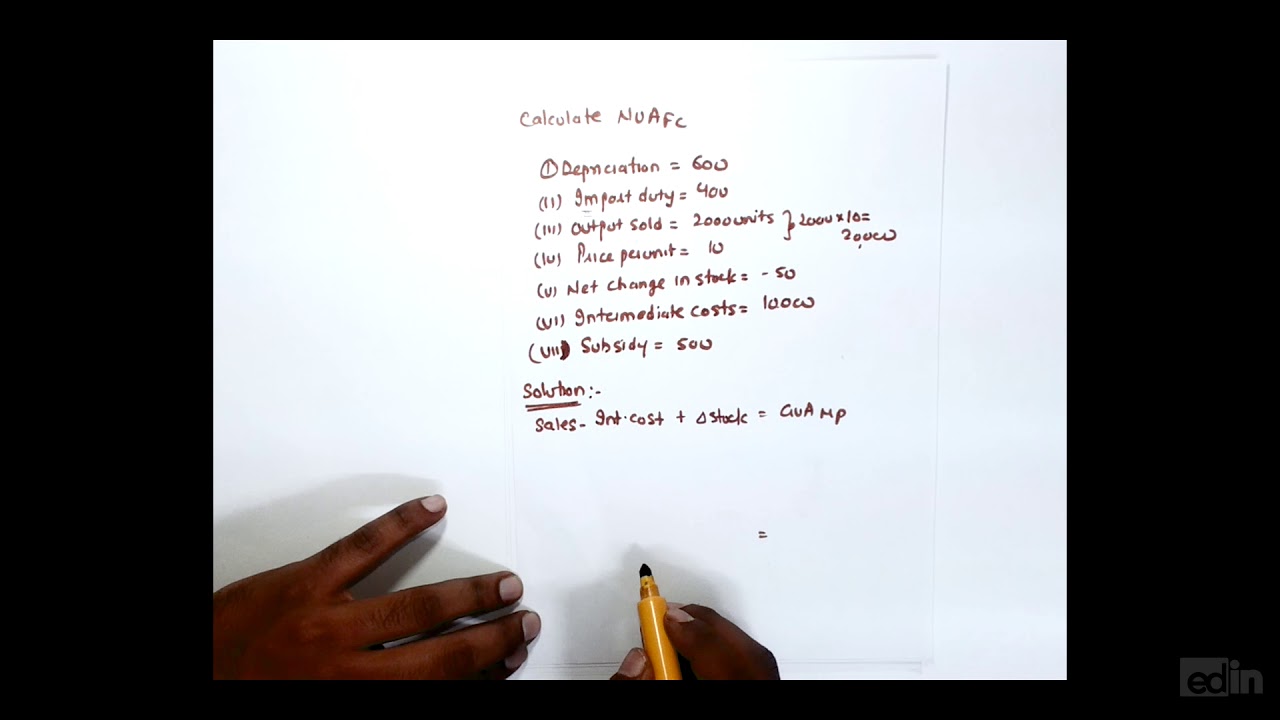 Calculate NVAFC
(i) Depriciation = 600
(ii) Import duty = 400
(iii) Output sold = 2000 units } 2000 x 10 =
20000
(iv) Price per unit = 10
(v) Net change in stock = - 50
(vi) Intermediate costs = 10000
(vii) Subsidy = 500
Solution :-
Sales - Int. cost + Δ stock = GVA MP
=
edin